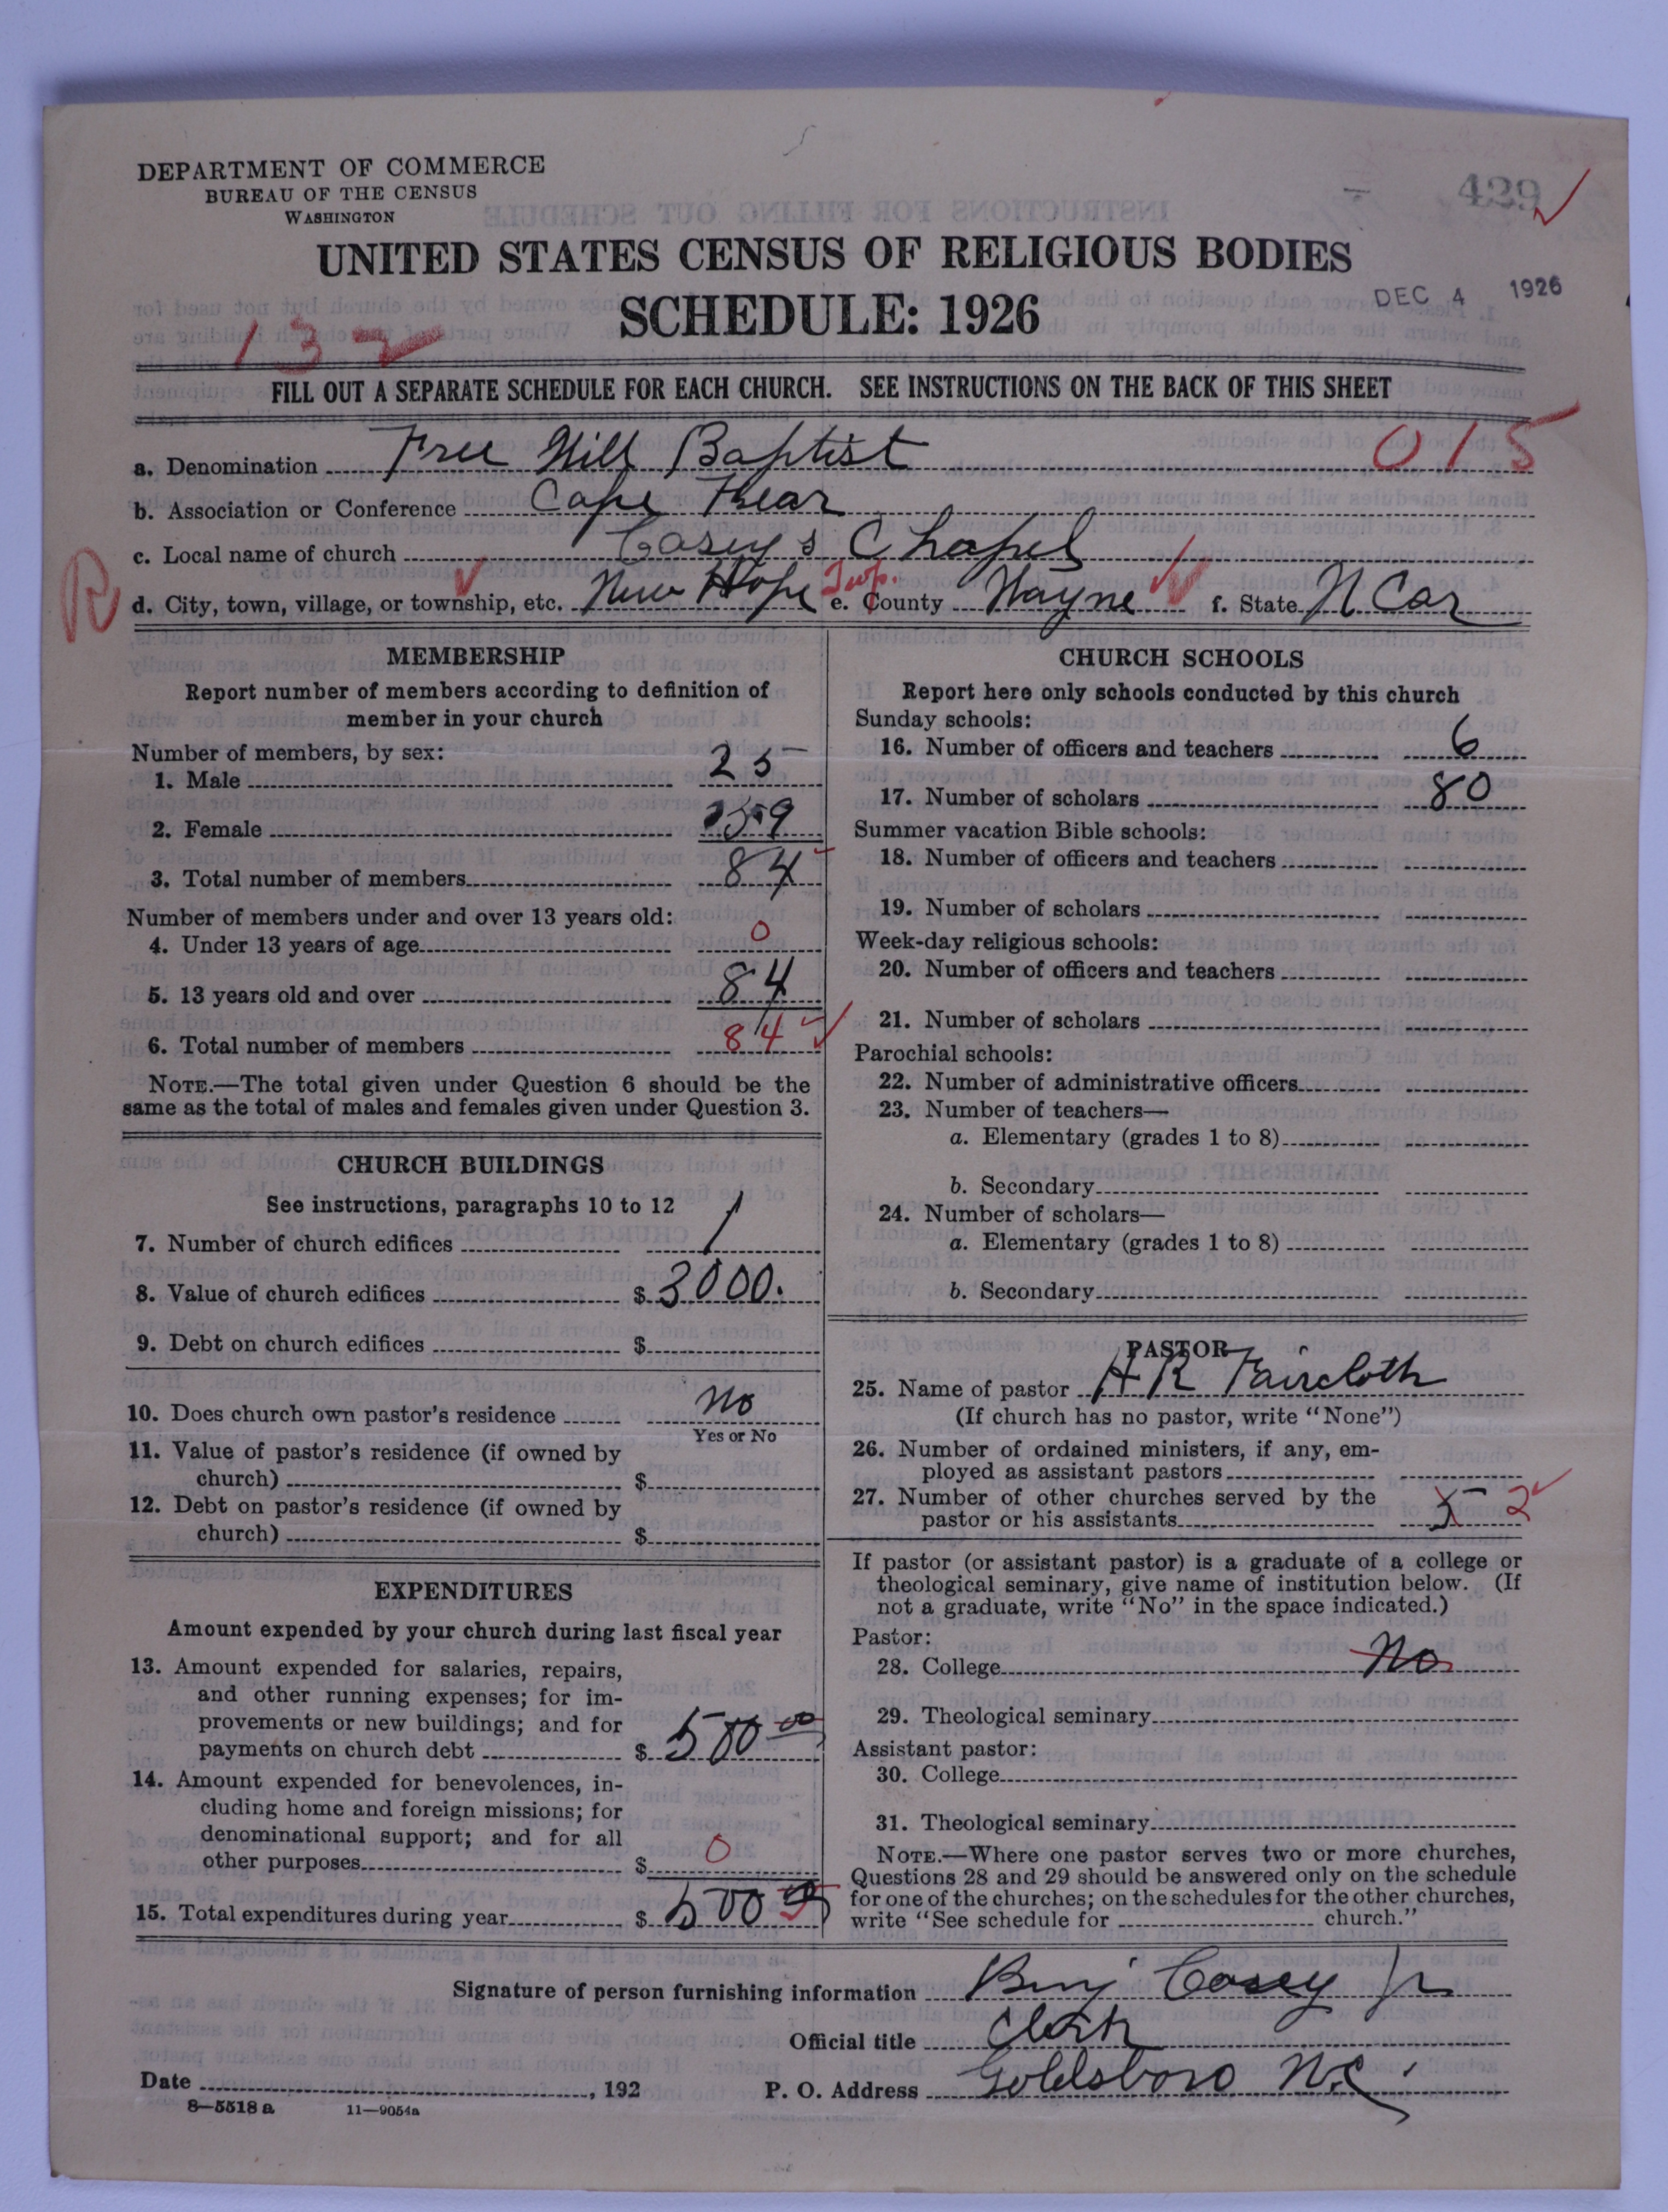 DEPARTMENT OF COMMERCE
BUREAU OF THE CENSUS
WASHINGTON
429
UNITED STATES CENSUS OF RELIGIOUS BODIES
SCHEDULE: 1926
DEC 4 1926
132
FILL OUT A SEPARATE SCHEDULE FOR EACH CHURCH. SEE INSTRUCTIONS ON THE BACK OF THIS SHEET
a. Denomination Free Will Baptist 015
b. Association or Conference Cape Fear
c. Local name of church Casey's Chapel
R d. City, town, village, or township, etc. New Hope Twp. e. County Wayne f. State N Car
MEMBERSHIP
Report number of members according to definition of
member in your church
Number of members, by sex:
1. Male 25
2. Female 59
3. Total number of members 84
Number of members under and over 13 years old:
4. Under 13 years of age 0
5. 13 years old and over 84
6. Total number of members 84
NOTE.—The total given under Question 6 should be the
same as the total of males and females given under Question 3.
CHURCH BUILDINGS
See instructions, paragraphs 10 to 12
7. Number of church edifices 1
8. Value of church edifices $ 3000.
9. Debt on church edifices $
10. Does church own pastor's residence No
Yes or No
11. Value of pastor's residence (if owned by
church) $
12. Debt on pastor's residence (if owned by
church) $
EXPENDITURES
Amount expended by your church during last fiscal year
13. Amount expended for salaries, repairs,
and other running expenses; for im-
provements or new buildings; and for
payments on church debt $ 500 00
14. Amount expended for benevolences, in-
cluding home and foreign missions; for
denominational support; and for all
other purposes $ 0
15. Total expenditures during year $ 500
CHURCH SCHOOLS
Report here only schools conducted by this church
Sunday schools:
16. Number of officers and teachers 6
17. Number of scholars 80
Summer vacation Bible schools:
18. Number of officers and teachers
19. Number of scholars
Week-day religious schools:
20. Number of officers and teachers
21. Number of scholars
Parochial schools:
22. Number of administrative officers
23. Number of teachers—
a. Elementary (grades 1 to 8)
b. Secondary
24. Number of scholars—
a. Elementary (grades 1 to 8)
b. Secondary
PASTOR
25. Name of pastor H R Faircloth
(If church has no pastor, write "None")
26. Number of ordained ministers, if any, em-
ployed as assistant pastors
27. Number of other churches served by the
pastor or his assistants 5 2
If pastor (or assistant pastor) is a graduate of a college or
theological seminary, give name of institution below. (If
not a graduate, write "No" in the space indicated.)
Pastor:
28. College No
29. Theological seminary
Assistant pastor:
30. College
31. Theological seminary
NOTE.—Where one pastor serves two or more churches,
Questions 28 and 29 should be answered only on the schedule
for one of the churches; on the schedules for the other churches,
write "See schedule for church."
Signature of person furnishing information Benj Casey Jr
Official title Clerk
Date , 192 P. O. Address Goldsboro N.C.
8—5518 a 11—9054a